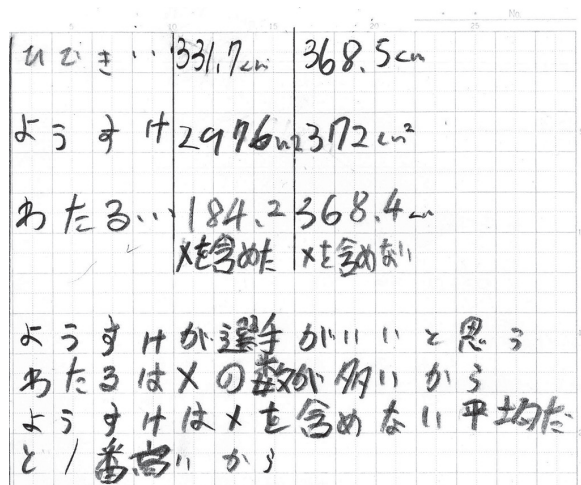 ひでき‥ 331.7cm 368.5cm
ようすけ 297.6cm 372cm²
わたる‥ 184.2 368.4cm
×を含めた ×を含めない
ようすけが選手がいいと思う
わたるは×の数が多いから
ようすけは×を含めない平均だ
と1番高いから